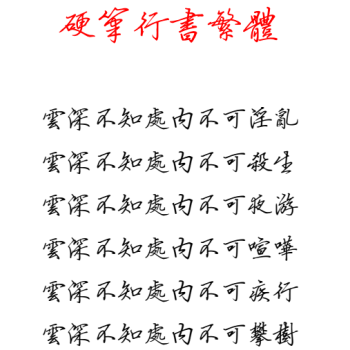 硬筆行書繁體
雲深不知處內不可淫亂
雲深不知處內不可殺生
雲深不知處內不可夜游
雲深不知處內不可喧嘩
雲深不知處內不可疾行
雲深不知處內不可攀樹